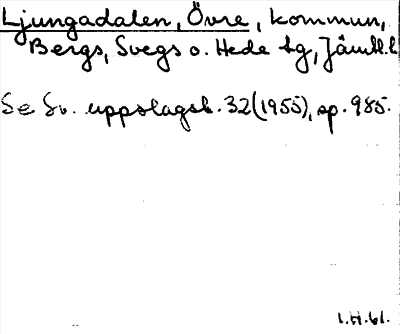 Ljungadalen, Övre, kommun,
Bergs, Svegs o. Hede tg, Jämtl. l.
Se Sv. uppslagsb. 32(1955), sp. 985.
1.11.61.